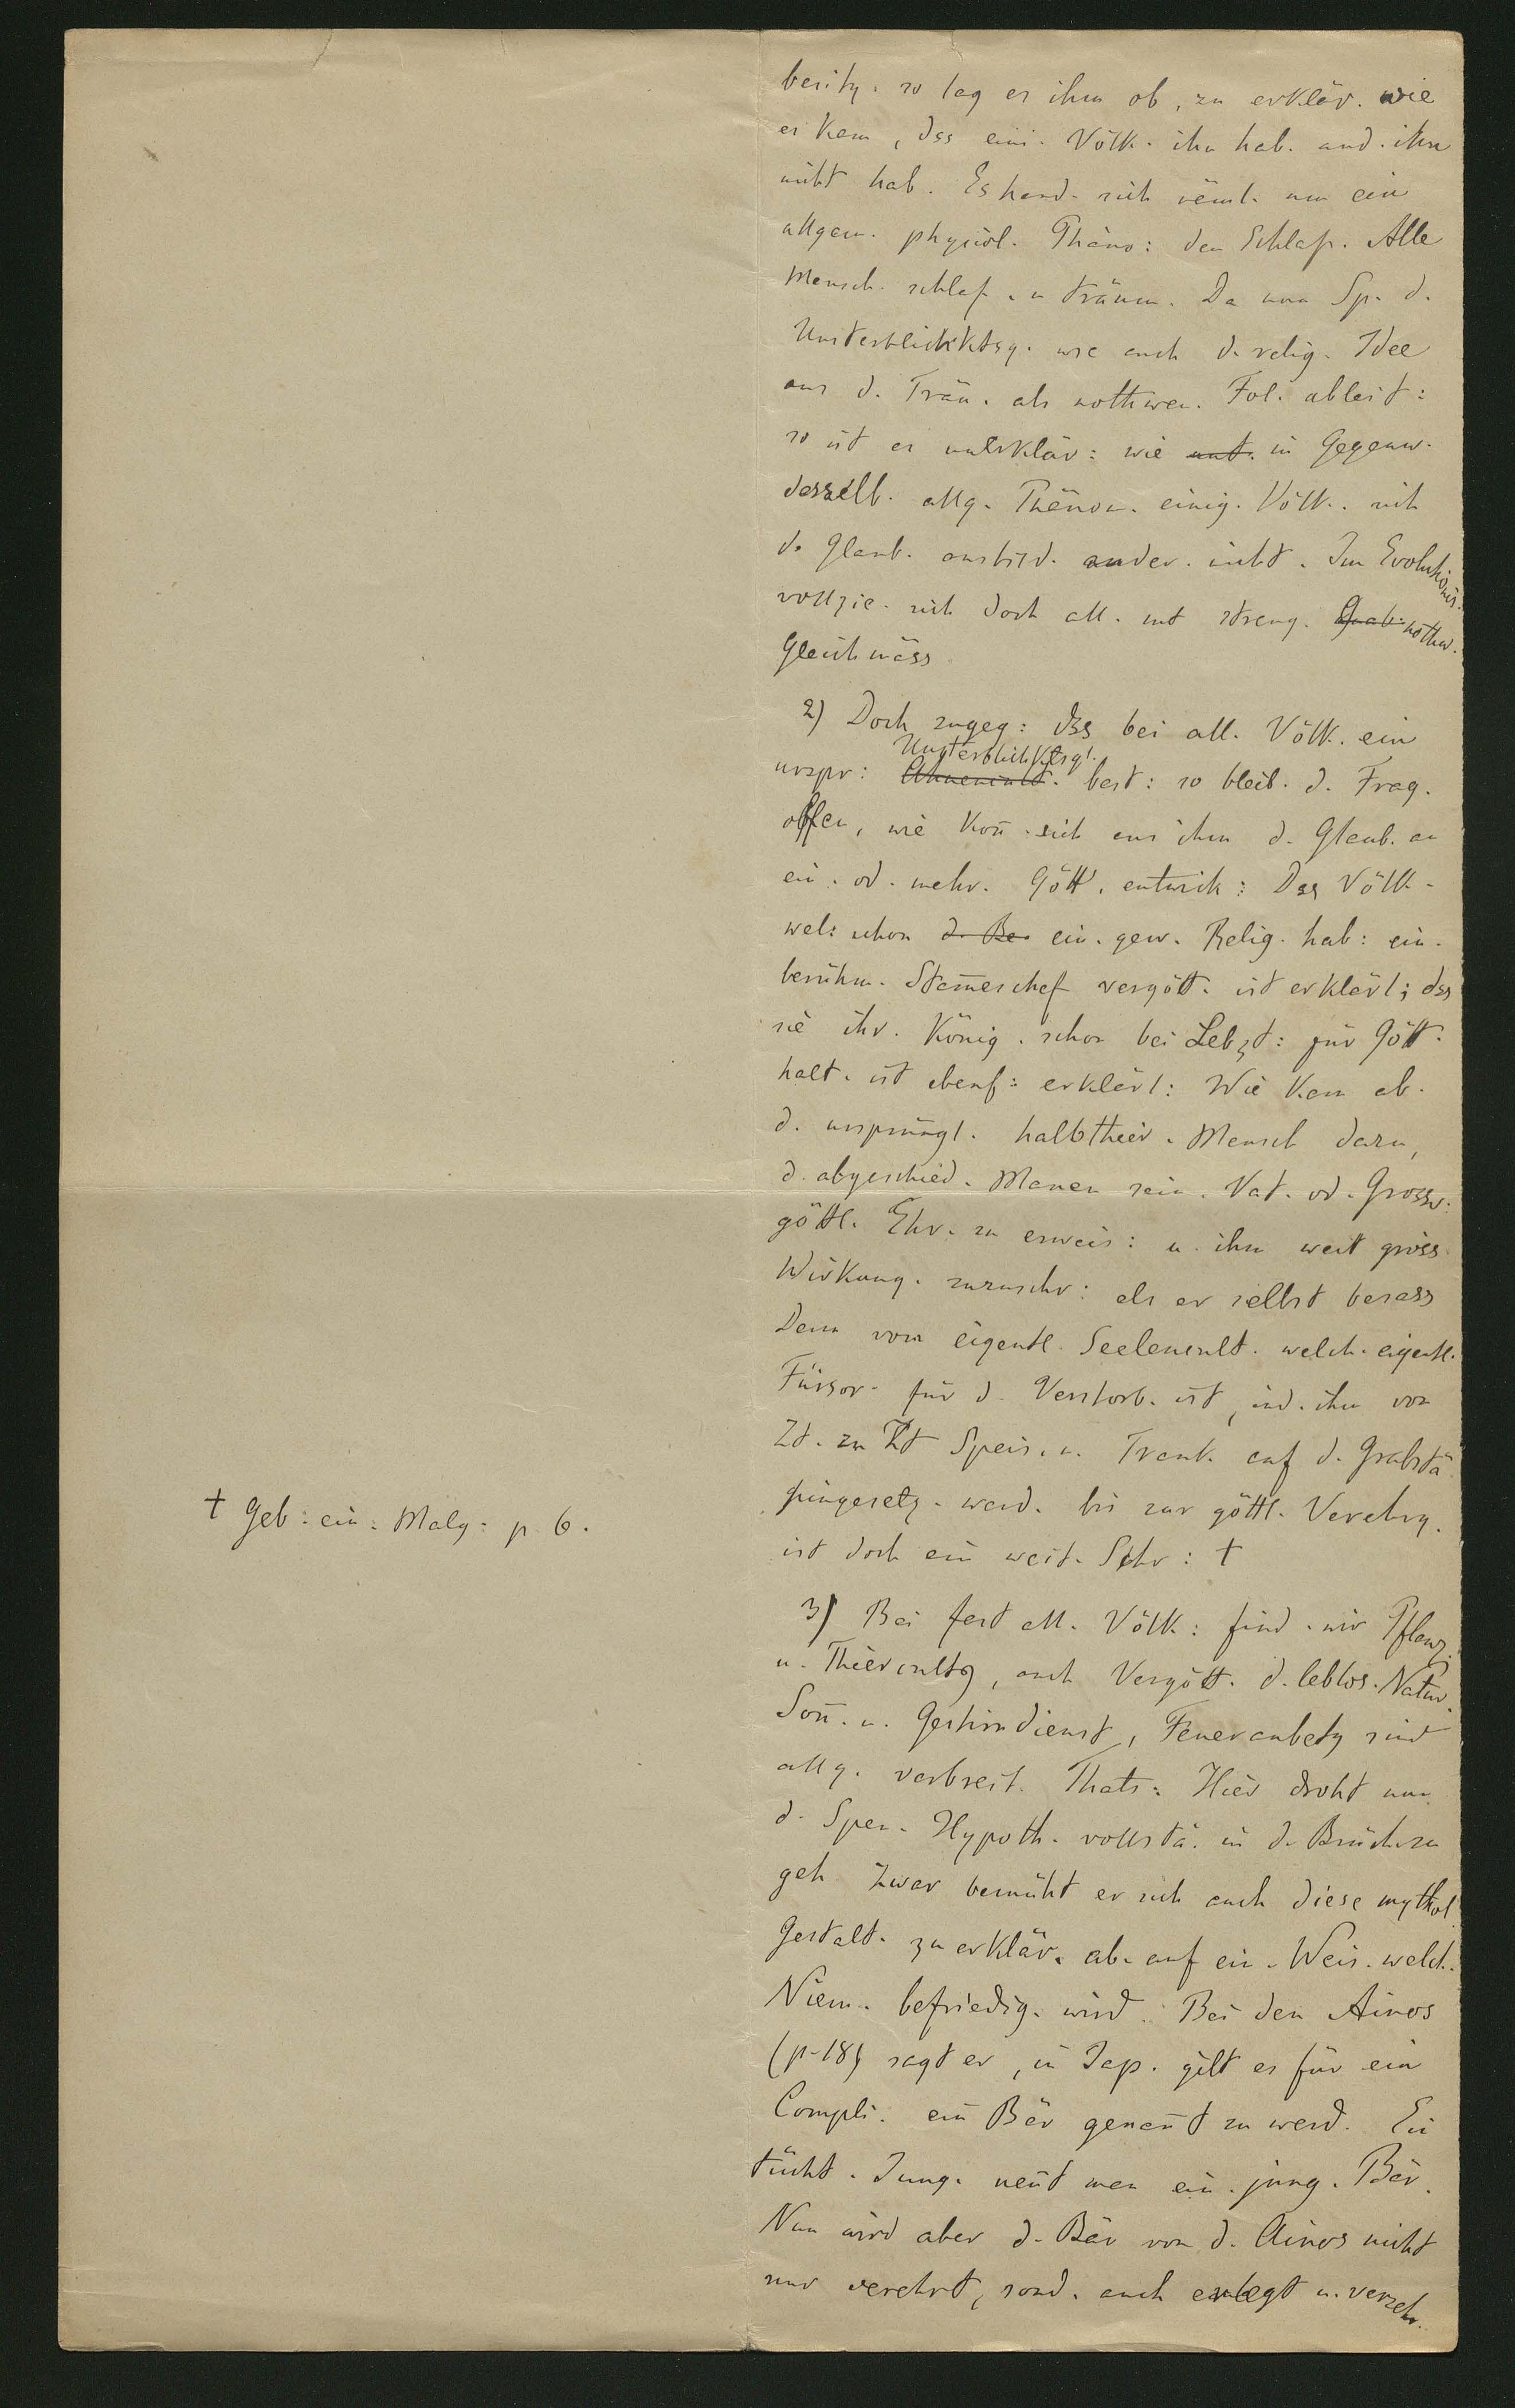 besitz. so lag es ihm ob, zu erklär. wie
es kam, dss eini. Völk. ihn hab. and. ihn
nicht hab. Es hand. sich näml. um ein
allgem. physiol. Phäno: den Schlaf. Alle
Mensch. schlaf. u träum. Da nun Sp. d.
Unsterblichktsg. wie auch d. relig. Idee
aus d. Träu. als nothwen. Fol. ableit:
so ist es unerklär: wie in Gegenw.
desselb. allg. Phänom. einig. Völk. sich
d. Glaub. ausbild. ander. nicht. Im Evolutionis.
vollzie. sich doch all. mit streng. nothw.
Gleichmäss
2) Doch zugeg: dss bei all. Völk. ein
Unsterblichktsgl.
urspr: best: so bleib. d. Frag.
offen, wie kon̄. sich aus ihm d. Glaub. an
ein. od. mehr. Gött. entwick: Dss Völk.
wel: schon d. Be. ein. gew. Relig. hab: ein.
berühm. Stam̄eschef vergött. ist erklärl; dss
sie ihr. König. schon bei Lebzt: für Gött.
halt. ist ebenf: erklärl: Wie kam ab.
d. ursprüngl. halbthier. Mensch dazu,
d. abgeschied. Manen sein. Vat. od. Grossv.
göttl. Ehr. zu erweis: u. ihm weit gröss
Wirkung. zuzuschr: als er selbst besass
Denn vom eigentl. Seelencult. welch. eigentl.
Fürsor. für d. Verstorb. ist, ind. ihm von
Zt. zu Zt Speis. u. Trank. auf d. Grabstä
hingesetz. werd. bis zur göttl. Verehrg.
ist doch ein weit. Schr: †
† Geb: ein: Malg: p. 6.
3) Bei fast all. Völk: find. wir Pflanz.
u. Thiercultg, auch Vergött. d. leblos. Natur.
Son̄. u. Gestirndienst, Feueranbetg sind
allg. verbreit. Thats: Hier droht nun
d. Spen. Hypoth. vollstä. in d. Brüch. zu
geh Zwar bemüht er sich auch diese mythol.
Gestalt. zu erklär. ab. auf ein. Weis. welch.
Niem. befriedig. wird. Bei den Ainos
(p. 18) sagt er, in Jap. gilt es für ein
Compli. ein Bär genan̄t zu werd. Ein
tücht. Jung. nen̄t man ein. jung. Bär.
Nun wird aber d. Bär von d. Ainos nicht
nur verehrt, sond. auch erlegt u. verzehr.